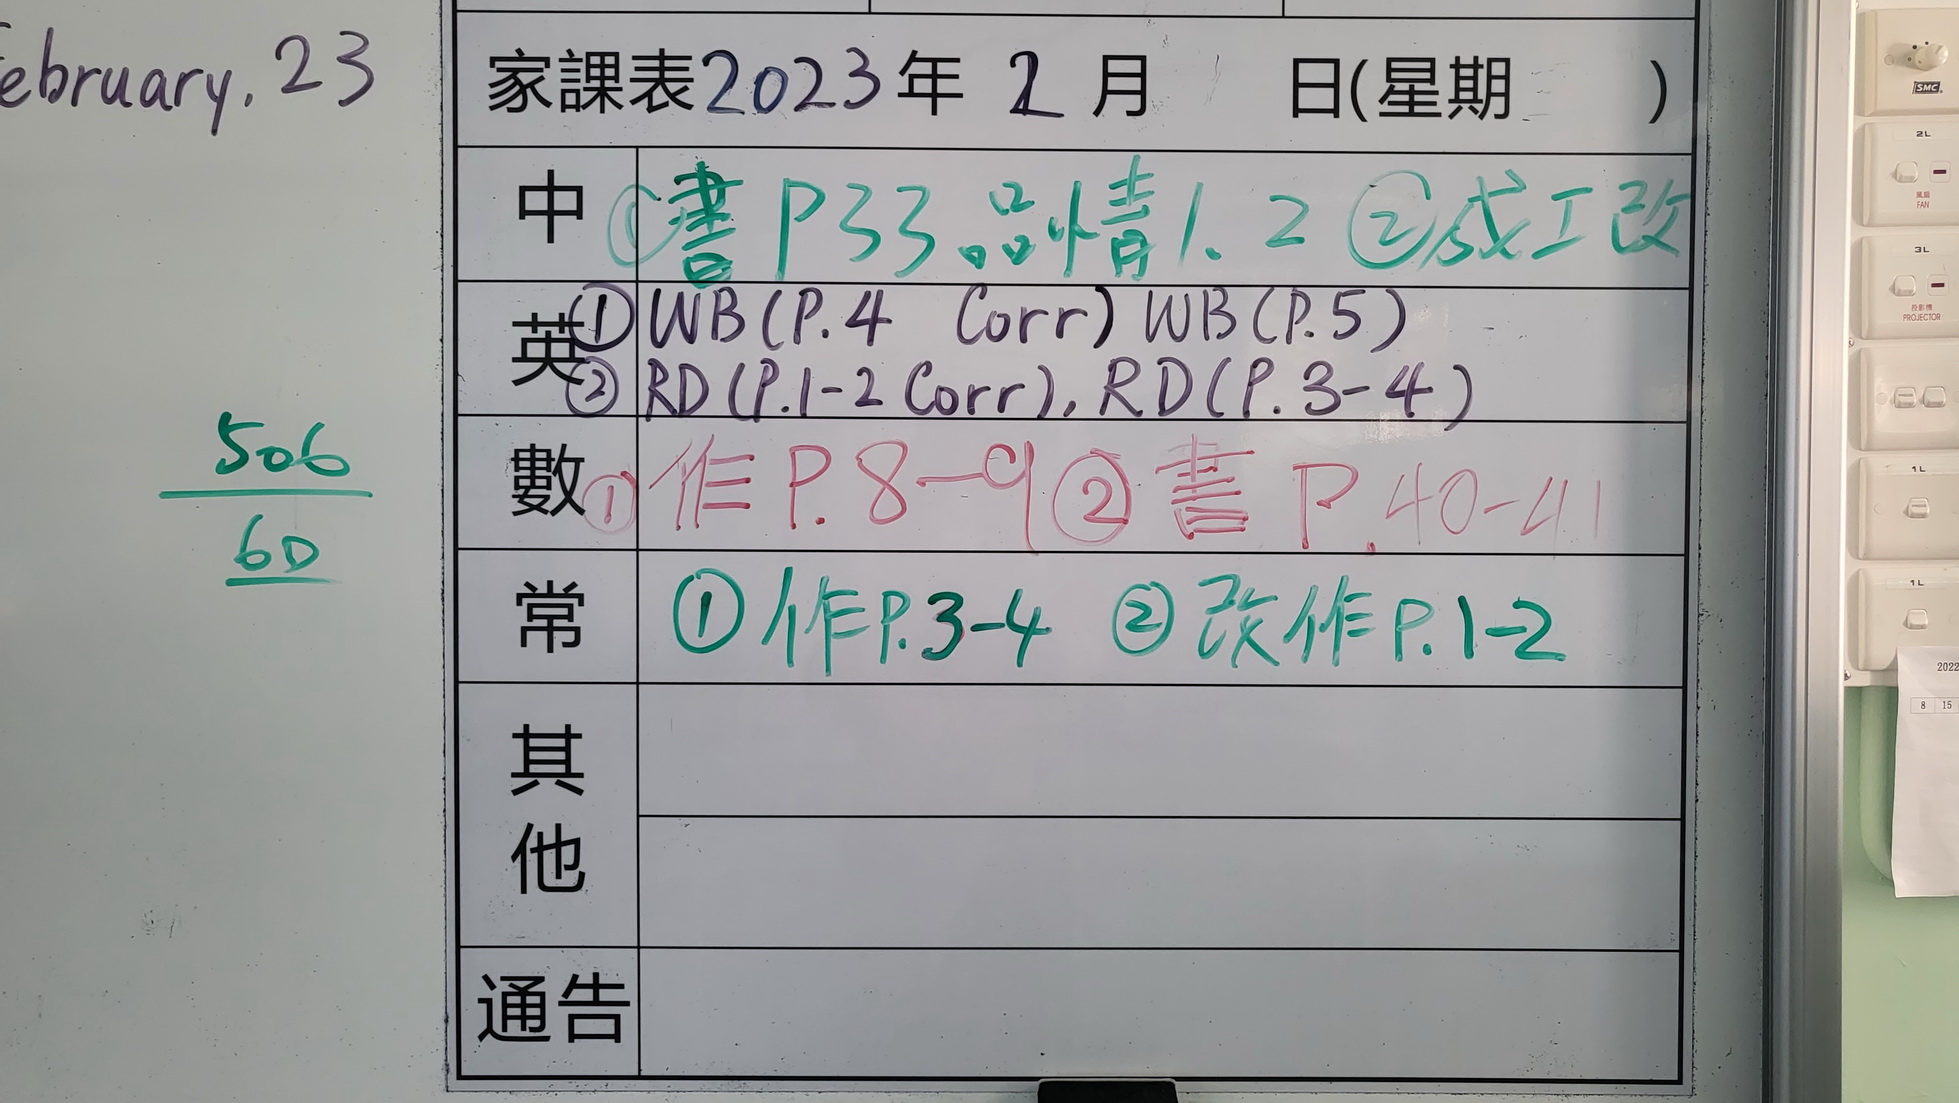 ebruary, 23
家課表2023年 2 月 日(星期 )
中 ①書 P33 品情1. 2 ②成工改
英 ①WB(P.4 Corr) WB(P.5)
②RD(P.1-2 Corr), RD(P.3-4)
數 ①作P.8-9 ②書 P.40-41
常 ①作P.3-4 ②改作P.1-2
其他
通告
506
60
SMC
2L
風扇
FAN
3L
投影機
PROJECTOR
1L
1L
2022
8 15